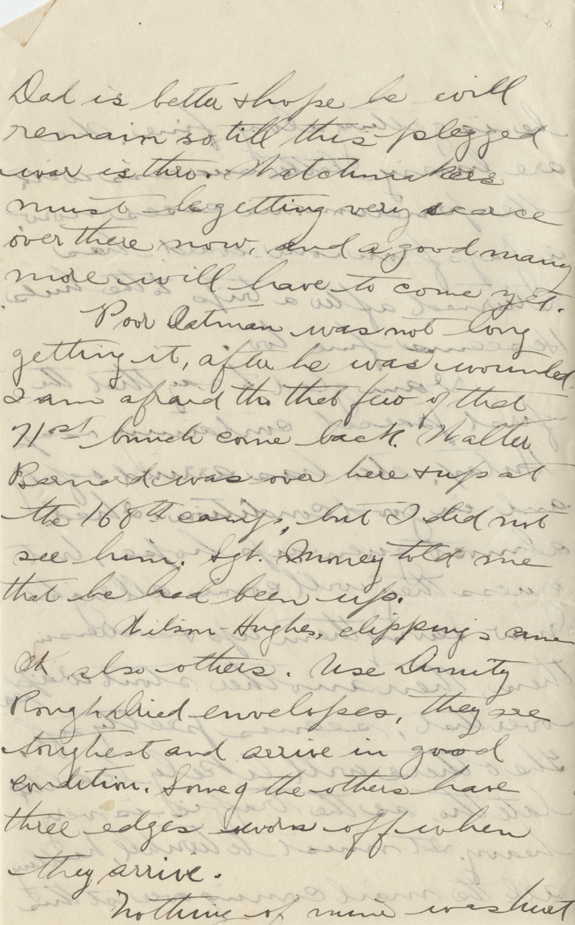 Dad is better & hope he will
remain so till this plegged
war is thro. Watchmakers
must be getting very scarce
over there now, and a good many
more will have to come yet.
Poor Oatman was not long
getting it, after he was wounded.
I am afraid tho that few of that
71st bunch come back. Walter
Bernard was over here & up at
the 168th camp, but I did not
see him. Sgt. Money told me
that he had been up.
Wilson-Hughes, clippings came
OK also others. Use Dimity
Rough Dried envelopes, they are
toughest and arrive in good
condition. Some of the others have
three edges worn off when
they arrive.
Nothing of mine was hurt